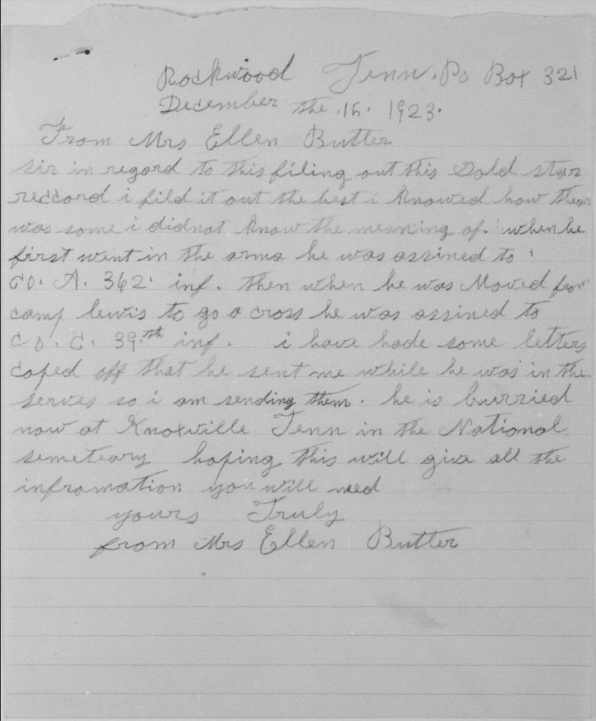 Rockwood Tenn. Po Box 321
December the .15. 1923.
From Mrs Ellen Butter
sir in regard to this filing out this Gold star
reccord i fild it out the best i knowed how there
was some i didnot know the meaning of. when he
first went in the arma he was assined to
CO. A. 362. inf. then when he was Moved from
camp lewis to go a cross he was assined to
C O. C. 39.th inf. i have hade some letters
coped off that he sent me while he was in the
serves so i am sending them. he is burried
now at Knoxville Tenn in the National
semeteary hoping this will give all the
infromation you will need
yours Truly
from Mrs Ellen Butter